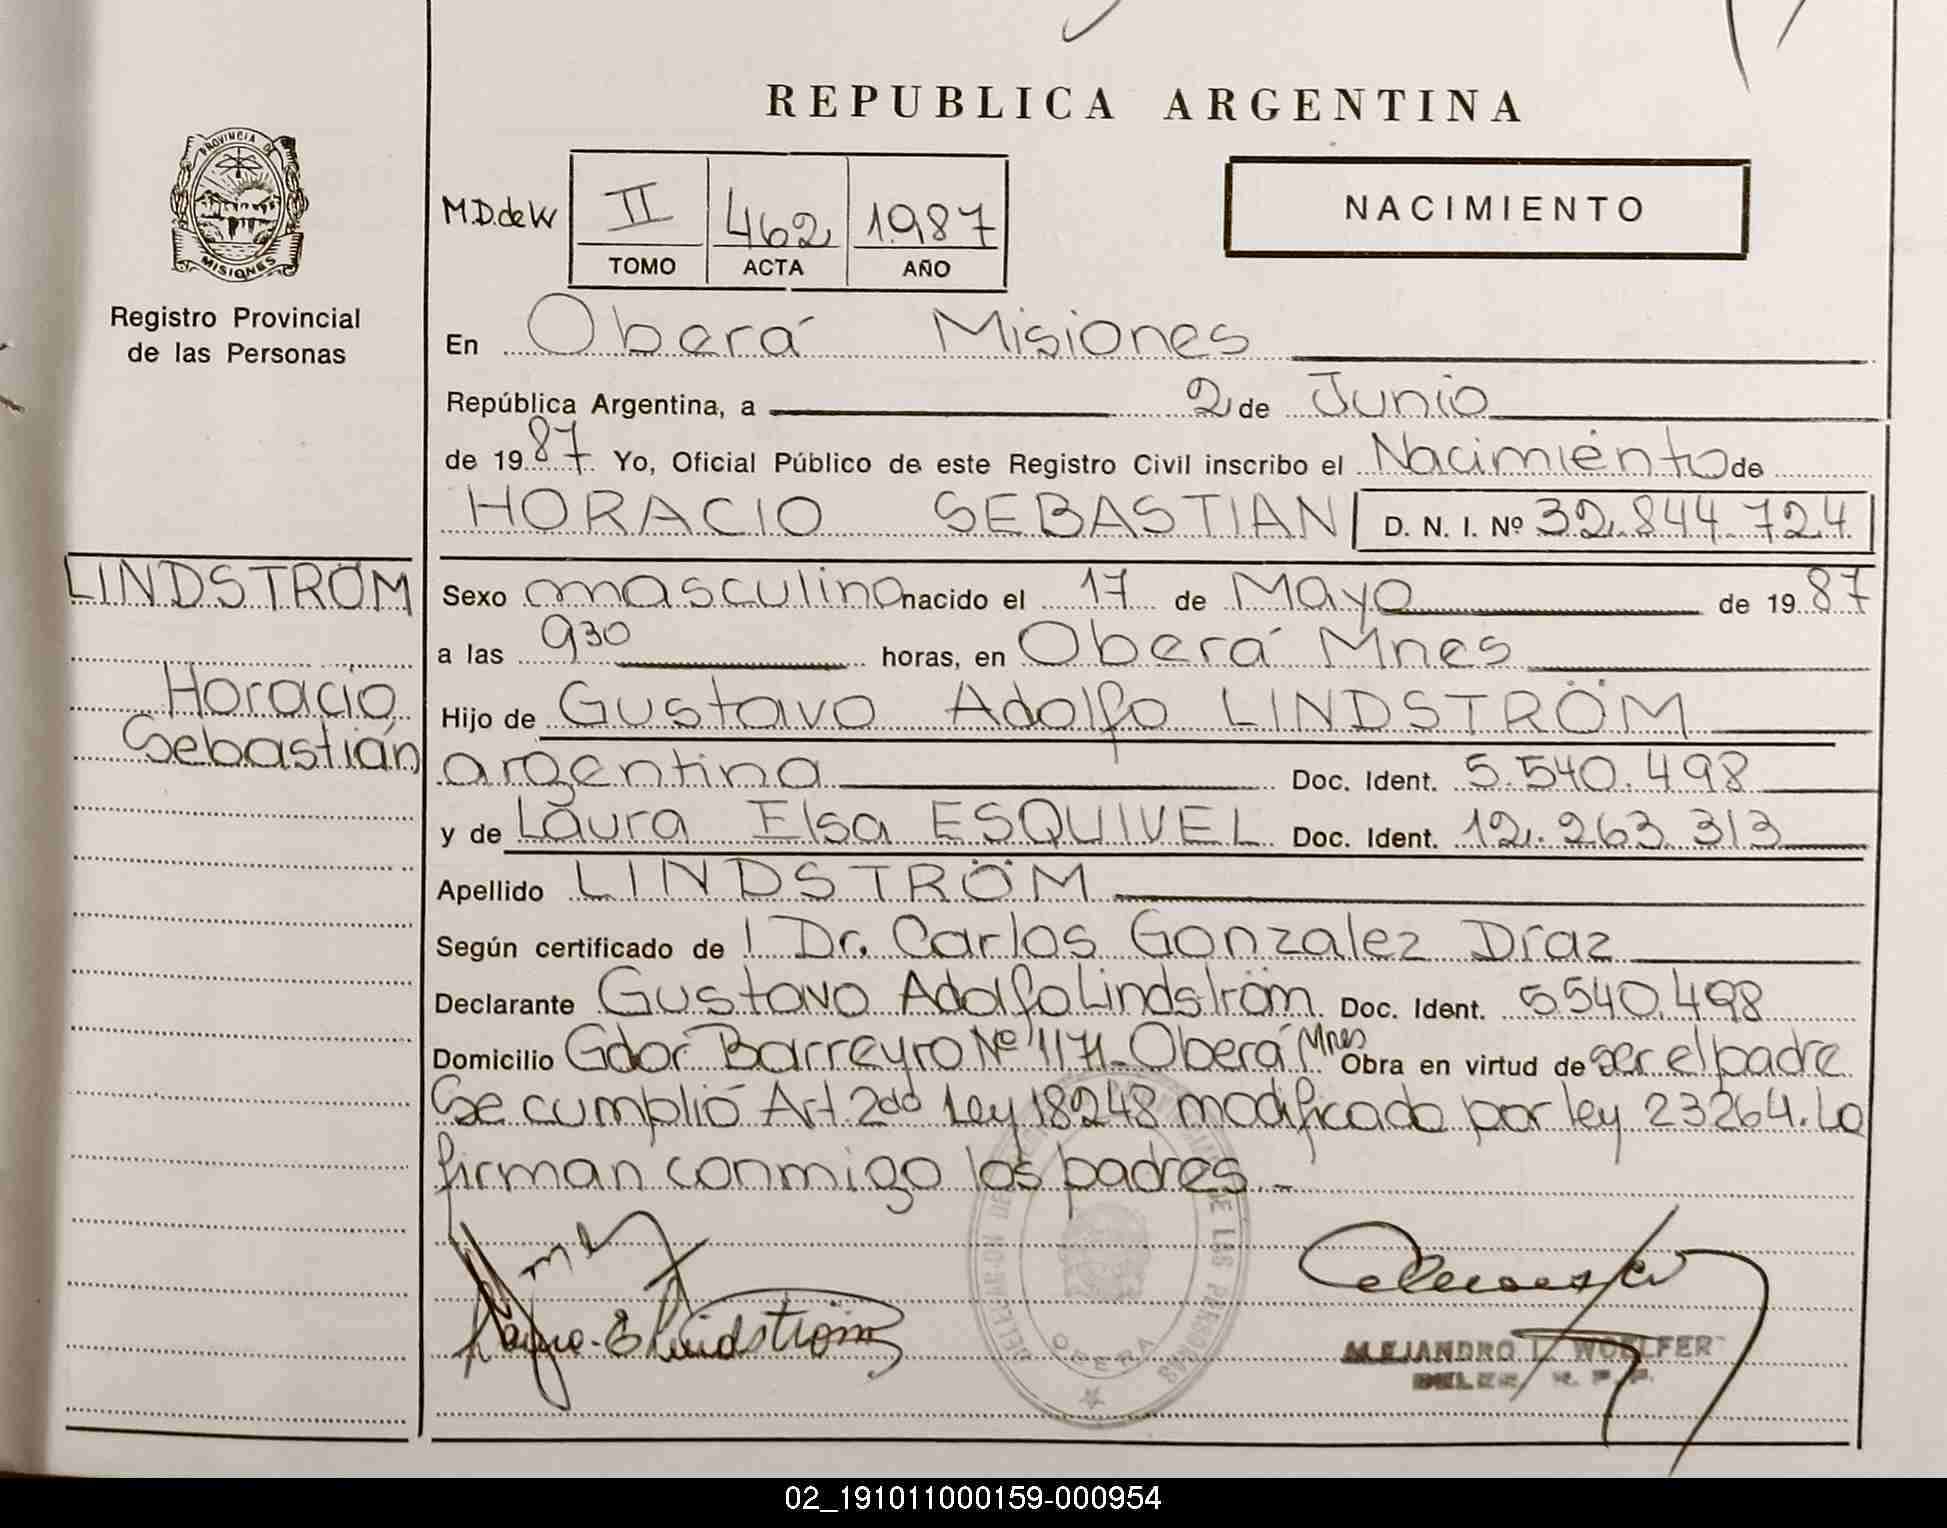 REPUBLICA ARGENTINA
PROVINCIA DE
MISIONES
Registro Provincial
de las Personas
NACIMIENTO
M.D.deW II 462 1987
TOMO ACTA AÑO
En Oberá Misiones
República Argentina, a 2 de Junio
de 1987 Yo, Oficial Público de este Registro Civil inscribo el Nacimiento de
HORACIO SEBASTIAN D. N. I. Nº 32.844.724
LINDSTRÖM
Horacio
Sebastián
Sexo masculino nacido el 17 de Mayo de 1987
a las 930 horas, en Oberá Mnes
Hijo de Gustavo Adolfo LINDSTRÖM
argentina Doc. Ident. 5.540.498
y de Laura Elsa ESQUIVEL Doc. Ident. 12.263.313
Apellido LINDSTRÖM
Según certificado de l Dr. Carlos Gonzalez Díaz
Declarante Gustavo Adolfo Lindström Doc. Ident. 5540.498
Domicilio Gdor. Barreyro Nº 1171 - Oberá Mnes Obra en virtud de ser el padre
Se cumplió Art. 2do Ley 18248 modificado por ley 23264. Lo
firman conmigo los padres.-
DE LAS PERSONAS
OBERA
Lindström
ALEJANDRO L. WOELFERT
02_191011000159-000954